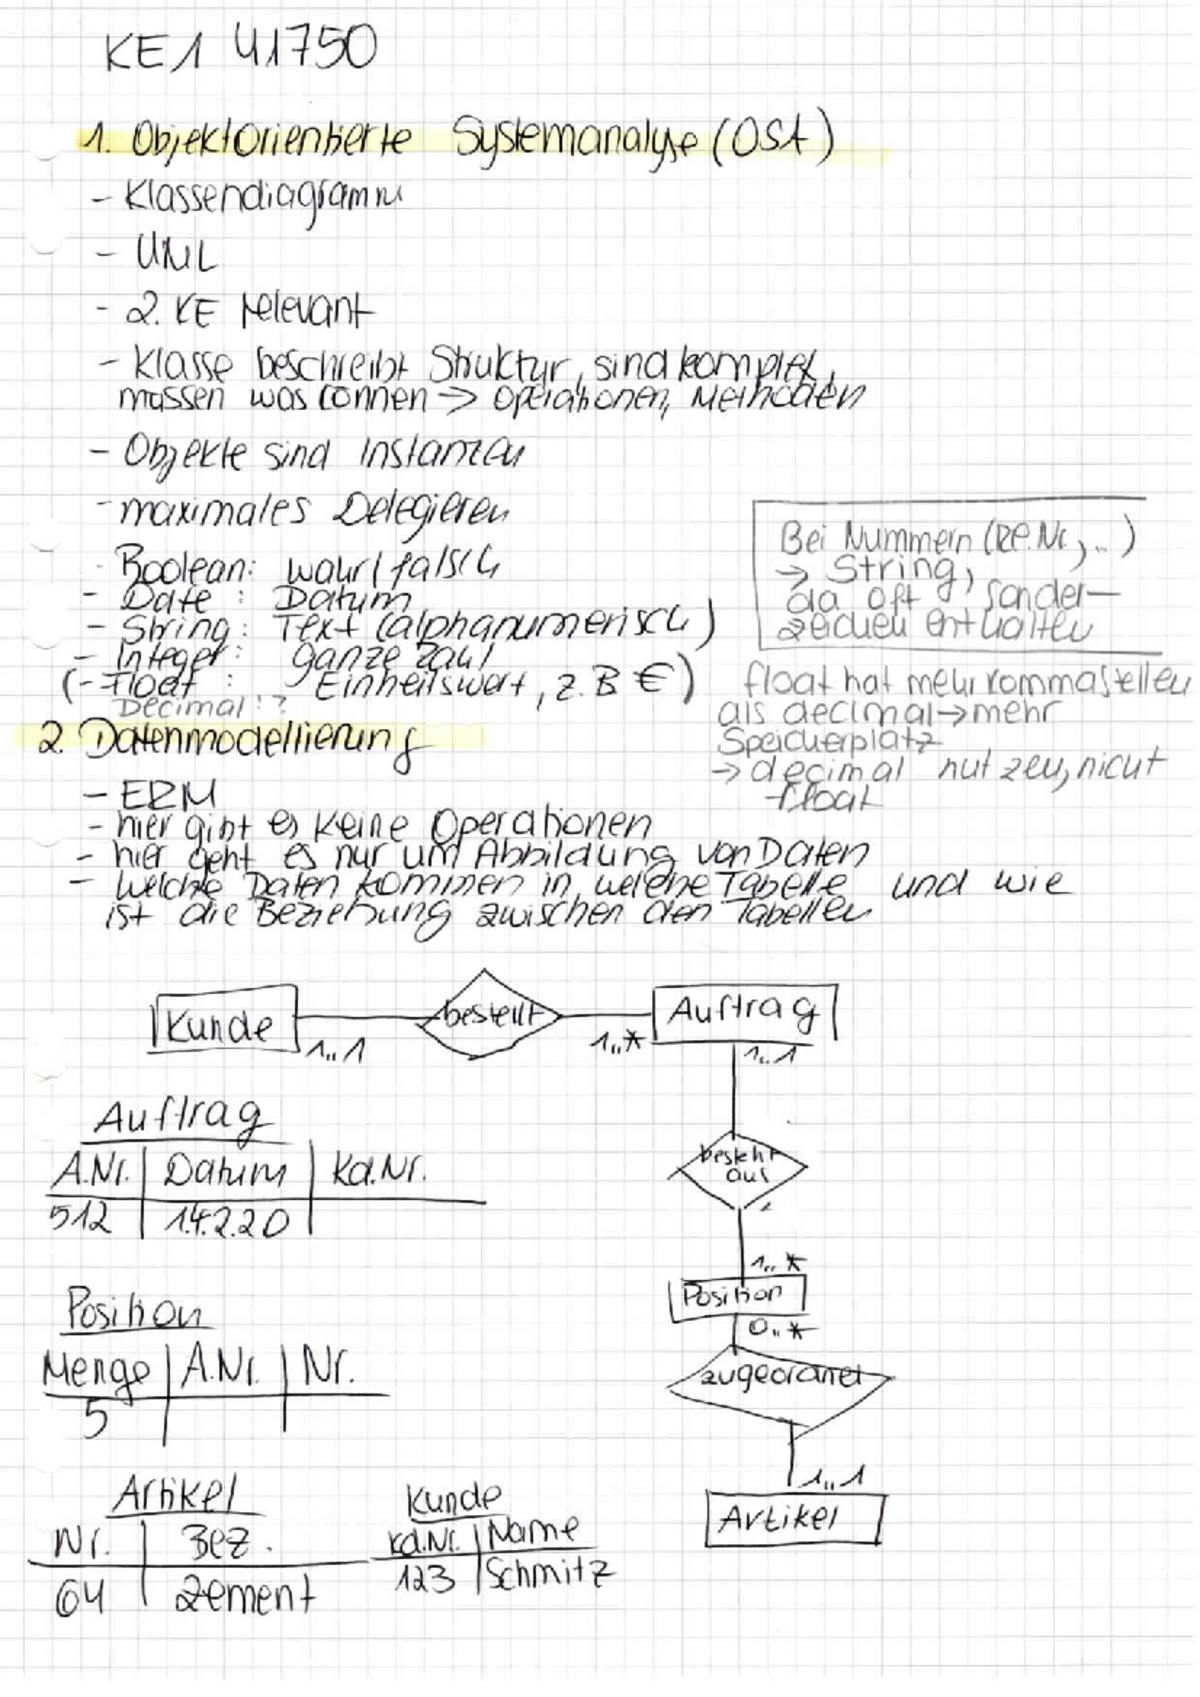 KE1 41750
1. Objektorientierte Systemanalyse (OSA)
- Klassendiagramm
- UML
- 2. KE relevant
- Klasse beschreibt Struktur, sind komplex,
müssen was können -> Operationen, Methoden
- Objekte sind Instanzen
- maximales Delegieren
- Boolean: wahr/falsch
- Date : Datum
- String: Text (alphanumerisch)
- Integer: ganze Zahl
(- Float : Einheitswert, z.B €)
Decimal!?
Bei Nummern (Re.Nr, ..)
-> String,
da oft Sonder-
zeichen enthalten
float hat mehr kommastellen
als decimal -> mehr
Speicherplatz
-> decimal nutzen, nicht
float
2. Datenmodellierung
- ERM
- hier gibt es keine Operationen
- hier geht es nur um Abbildung von Daten
- welche Daten kommen in welche Tabelle und wie
ist die Beziehung zwischen den Tabellen
Kunde 1..1 bestellt 1..* Auftrag
1..1
besteht
aus
1..*
Position
0..*
zugeordnet
1..1
Artikel
Auftrag
A.Nr. | Datum | Kd.Nr.
512 | 14.2.20 |
Position
Menge | A.Nr. | Nr.
5
Artikel
Nr. | Bez.
64 | Zement
Kunde
Kd.Nr. | Name
123 | Schmitz